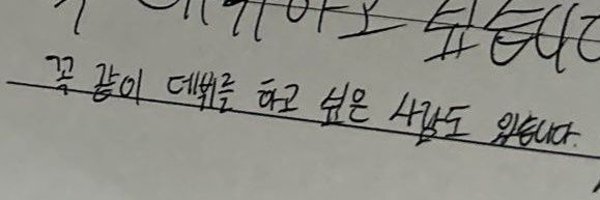 데뷔하고 싶습니다
꼭 같이 데뷔를 하고 싶은 사람도 있습니다.